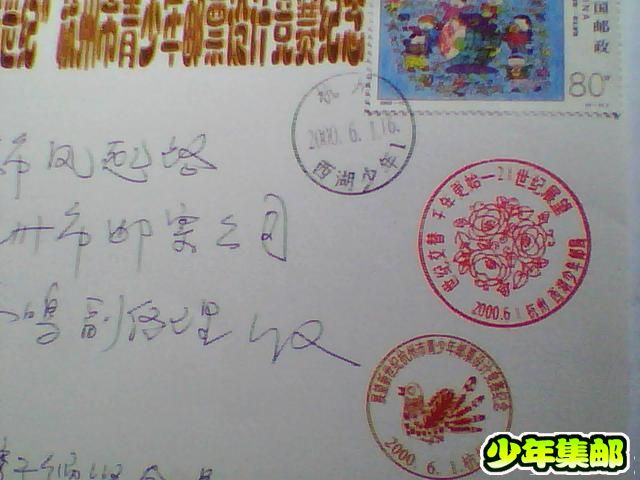 世纪”杭州市青少年邮票设计竞赛纪念
中国邮政
CHINA
80分
杭州
2000.6.1.16.
西湖少年1
世纪交替 千年更始—21世纪展望
2000.6.1 杭州 西湖少年邮局
市凤起路
州市邮票公司
鸣副经理 收
展望新世纪杭州市青少年邮票设计竞赛纪念
2000.6.1.杭
少年集邮